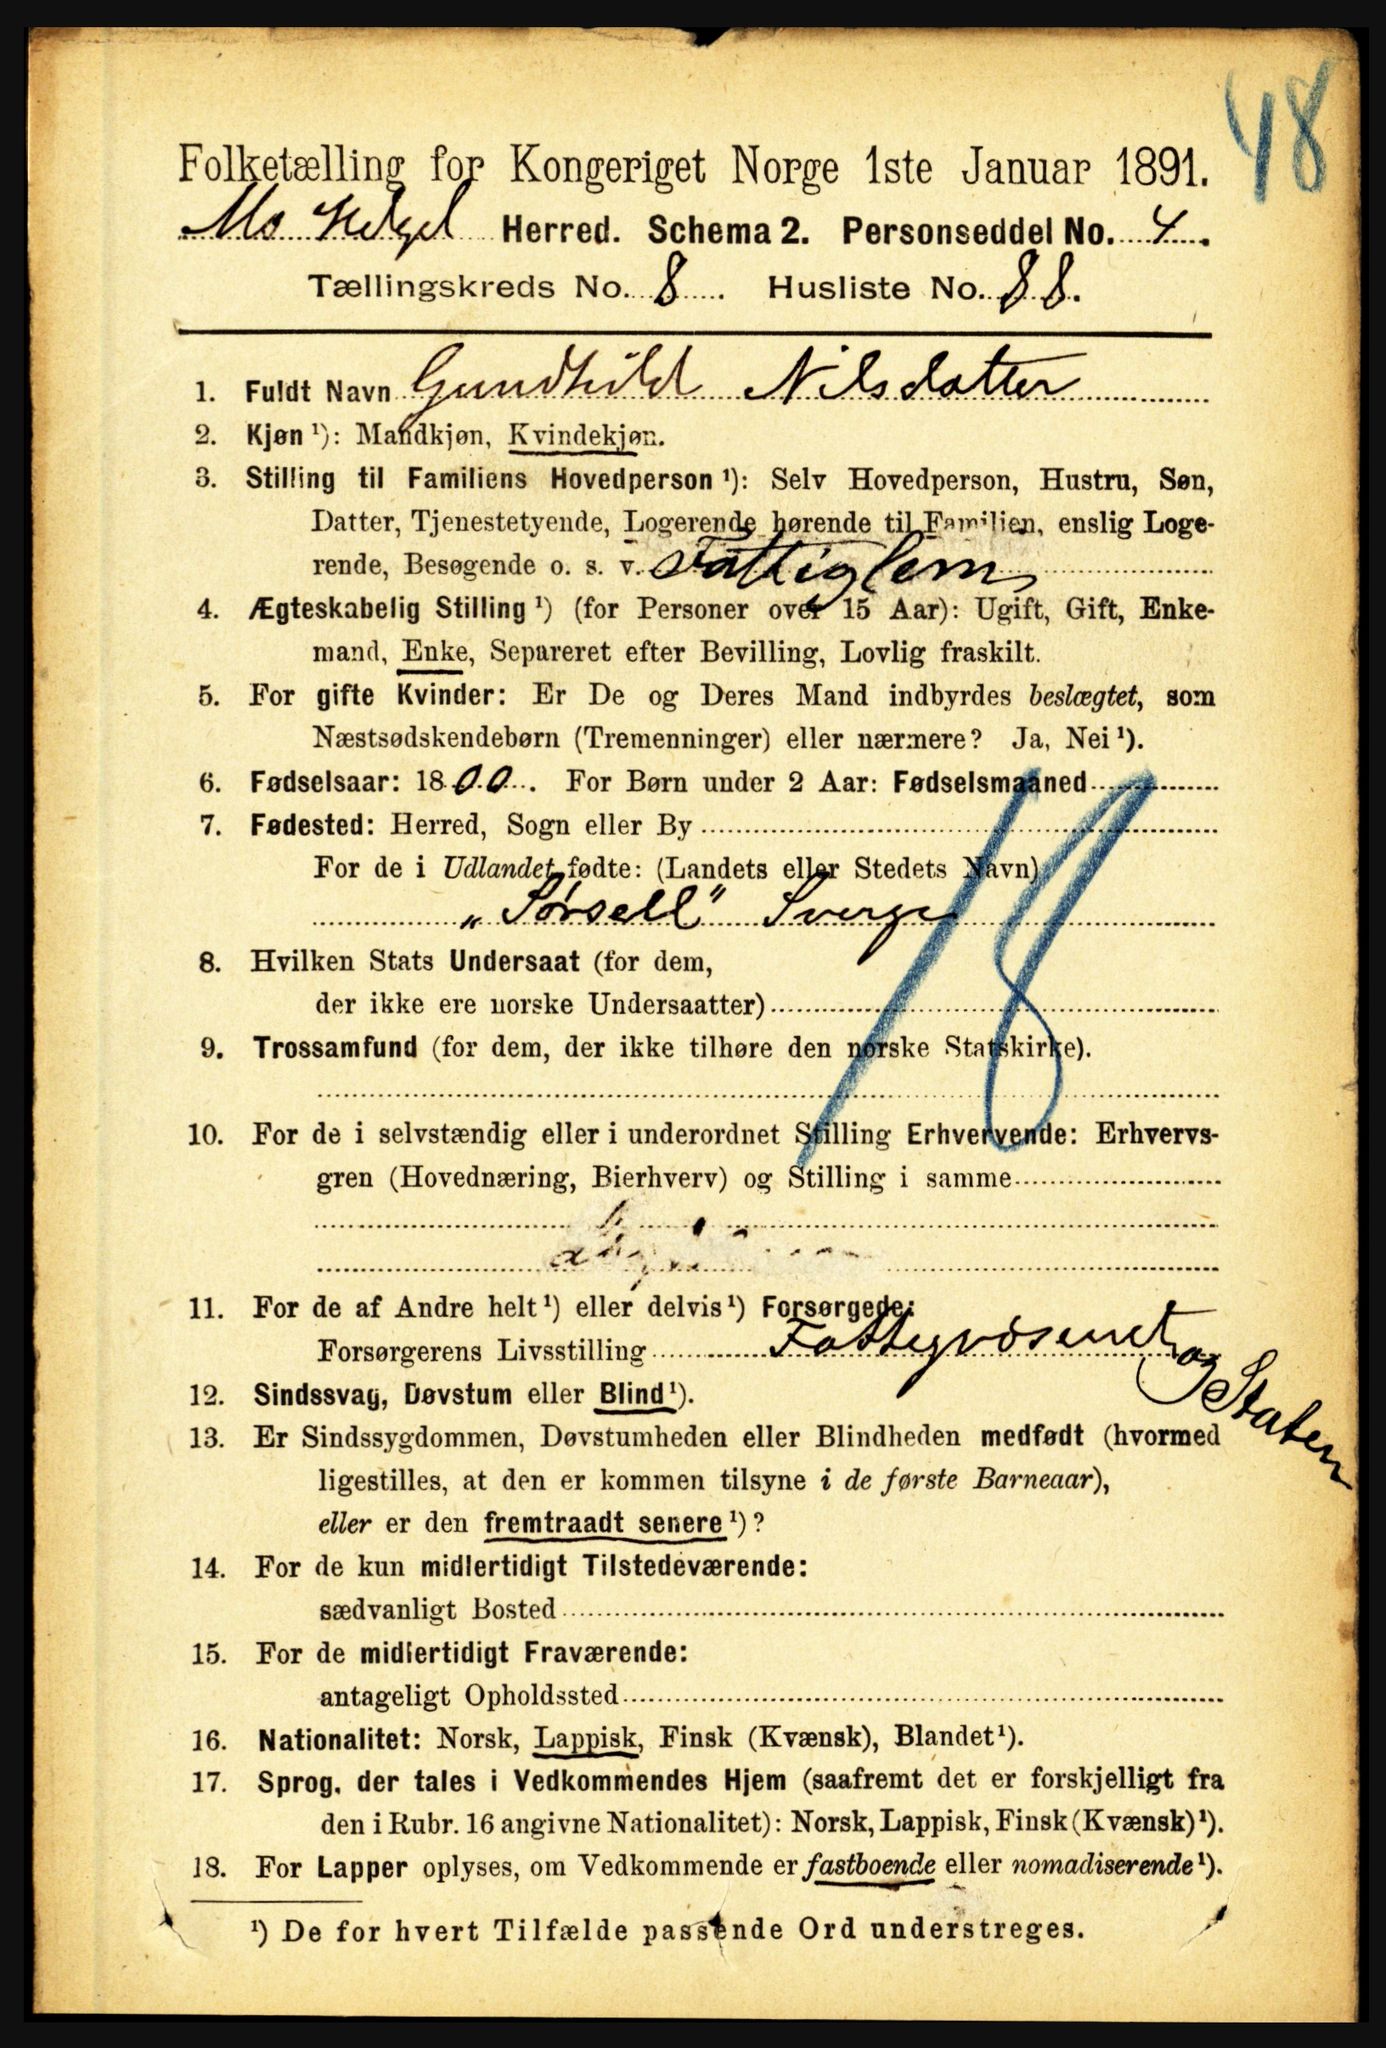 48
Folketælling for Kongeriget Norge 1ste Januar 1891.
Mo Helgel Herred. Schema 2. Personseddel No. 4.
Tællingskreds No. 8. Husliste No. 88.
1. Fuldt Navn Gundhild Nilsdatter
2. Kjøn ¹): Mandkjøn, Kvindekjøn.
3. Stilling til Familiens Hovedperson ¹): Selv Hovedperson, Hustru, Søn,
Datter, Tjenestetyende, Logerende hørende til Familien, enslig Loge-
rende, Besøgende o. s. v. Fattiglem
4. Ægteskabelig Stilling ¹) (for Personer over 15 Aar): Ugift, Gift, Enke-
mand, Enke, Separeret efter Bevilling, Lovlig fraskilt.
5. For gifte Kvinder: Er De og Deres Mand indbyrdes beslægtet, som
Næstsødskendebørn (Tremenninger) eller nærmere? Ja, Nei ¹).
6. Fødselsaar: 1800. For Børn under 2 Aar: Fødselsmaaned
7. Fødested: Herred, Sogn eller By
For de i Udlandet fødte: (Landets eller Stedets Navn)
„Sørsell" Sverge
18
8. Hvilken Stats Undersaat (for dem,
der ikke ere norske Undersaatter)
9. Trossamfund (for dem, der ikke tilhøre den norske Statskirke).
10. For de i selvstændig eller i underordnet Stilling Erhvervende: Erhvervs-
gren (Hovednæring, Bierhverv) og Stilling i samme
11. For de af Andre helt ¹) eller delvis ¹) Forsørgede:
Forsørgerens Livsstilling Fattigvæsenet og Staten
12. Sindssvag, Døvstum eller Blind ¹).
13. Er Sindssygdommen, Døvstumheden eller Blindheden medfødt (hvormed
ligestilles, at den er kommen tilsyne i de første Barneaar),
eller er den fremtraadt senere ¹)?
14. For de kun midlertidigt Tilstedeværende:
sædvanligt Bosted
15. For de midlertidigt Fraværende:
antageligt Opholdssted
16. Nationalitet: Norsk, Lappisk, Finsk (Kvænsk), Blandet ¹).
17. Sprog, der tales i Vedkommendes Hjem (saafremt det er forskjelligt fra
den i Rubr. 16 angivne Nationalitet): Norsk, Lappisk, Finsk (Kvænsk) ¹).
18. For Lapper oplyses, om Vedkommende er fastboende eller nomadiserende ¹).
¹) De for hvert Tilfælde passende Ord understreges.